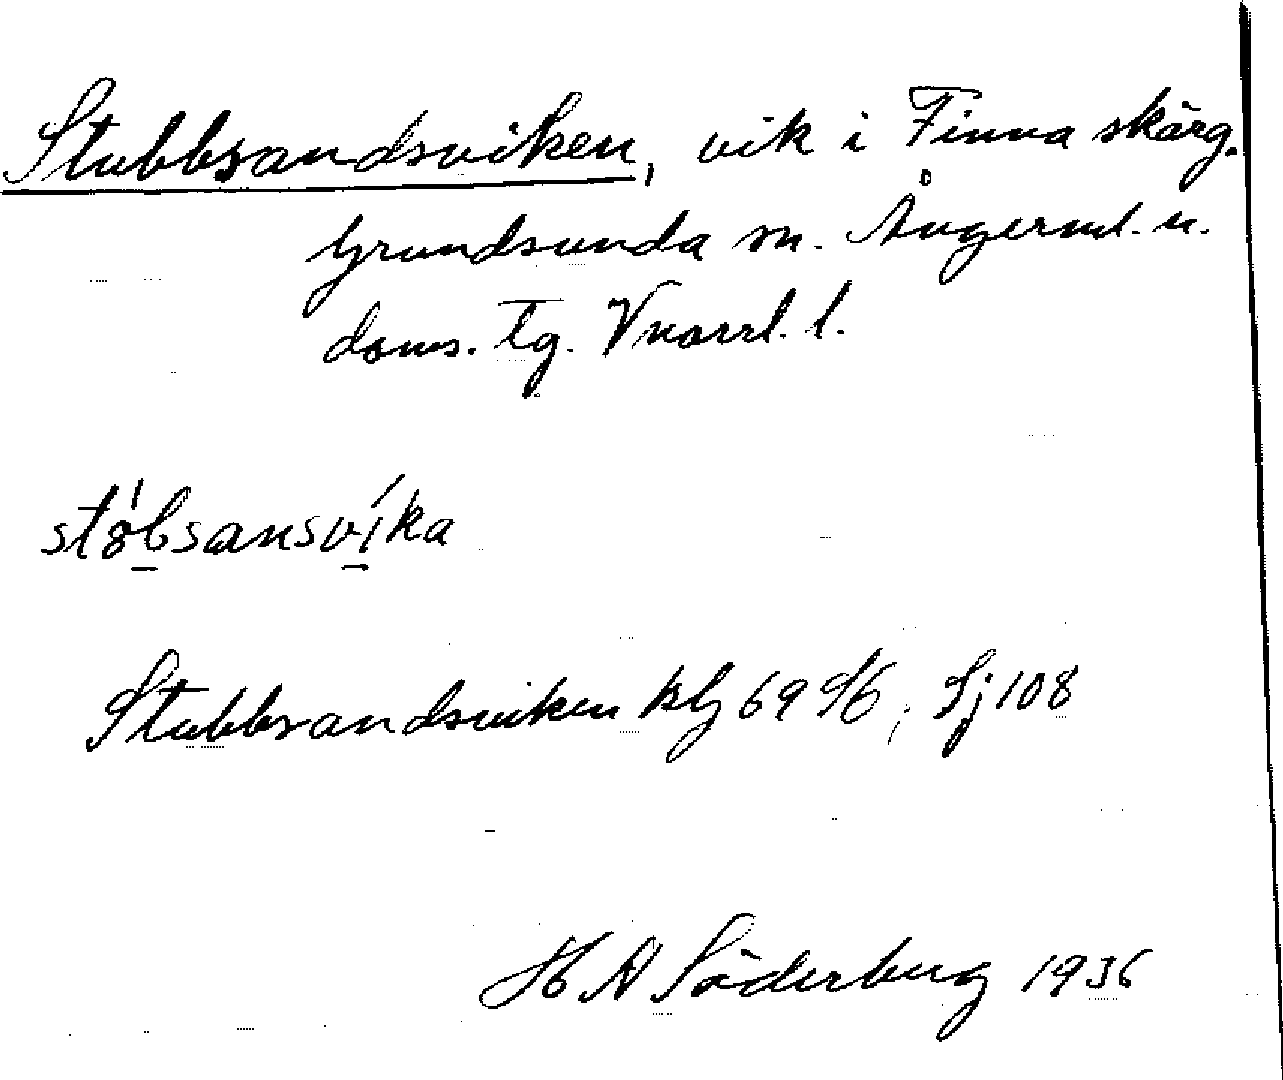 Stubbsandsviken, vik i Finna skärg.
Grundsunda sn. Ångerml. n.
doms. tg. Vnorrl. l.
stobsansvika
Stubbsandsviken kbl 69 Sj 108
H A Söderberg 1936